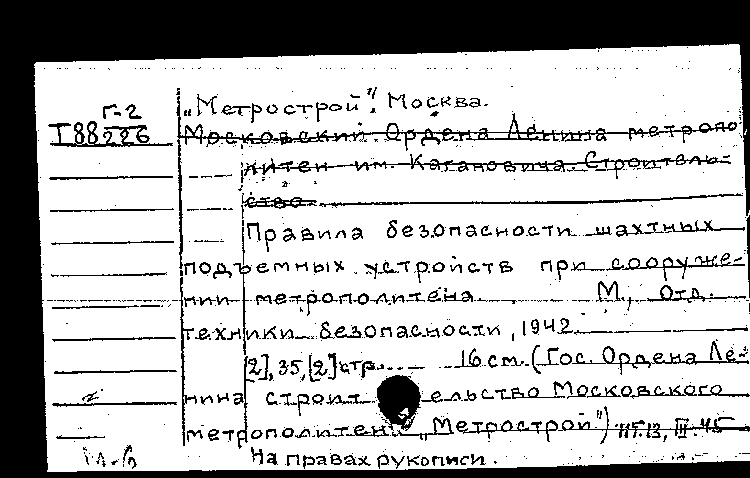 Г-2
Т88 226
„Метрострой". Москва.
Московский Ордена Ленина метропо
литен им. Кагановича. Строитель-
ство.
Правила безопасности шахтных
подъемных устройств при сооруже-
нии метрополитена. М., Отд.
техники безопасности, 1942.
[2], 35, [2] стр. 16 см. (Гос. Ордена Ле-
нина строит ельство Московского
метрополитена „Метрострой")
На правах рукописи.